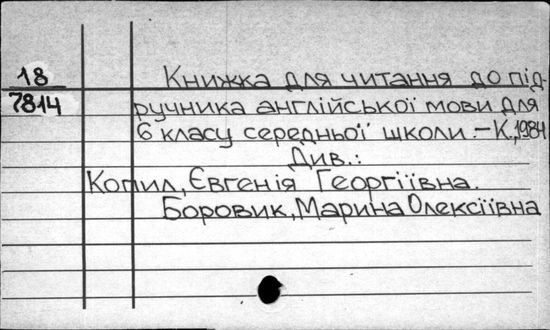 18
7814
Книжка для читання до під-
ручника англійської мови для
6 класу середньої школи.–К.,1984
Див.:
Копил, Євгенія Георгіївна.
Боровик, Марина Олексіївна